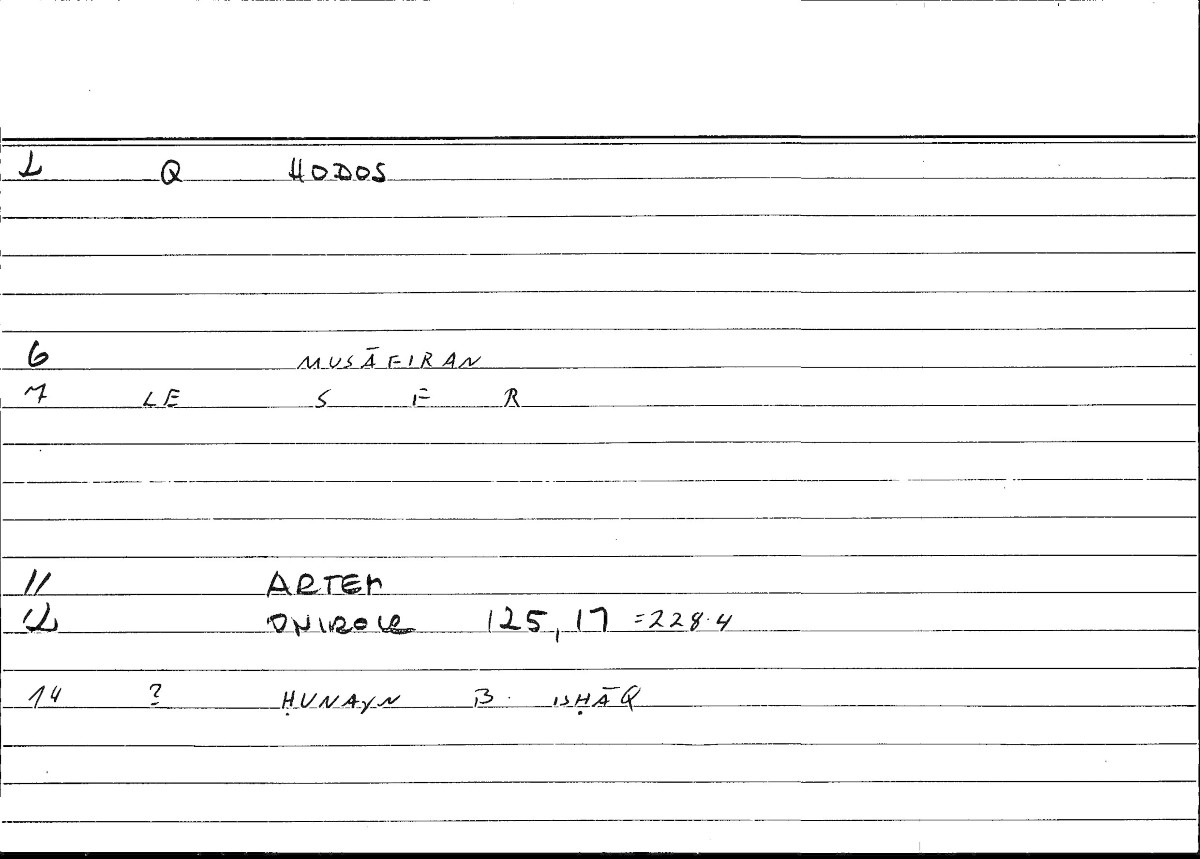 1 Q HODOS
6 MUSĀFIRAN
7 LE S F R
11 ARTEM
12 ONIROCR 125, 17 =228.4
14 ? ḤUNAYN B. ISḤĀQ